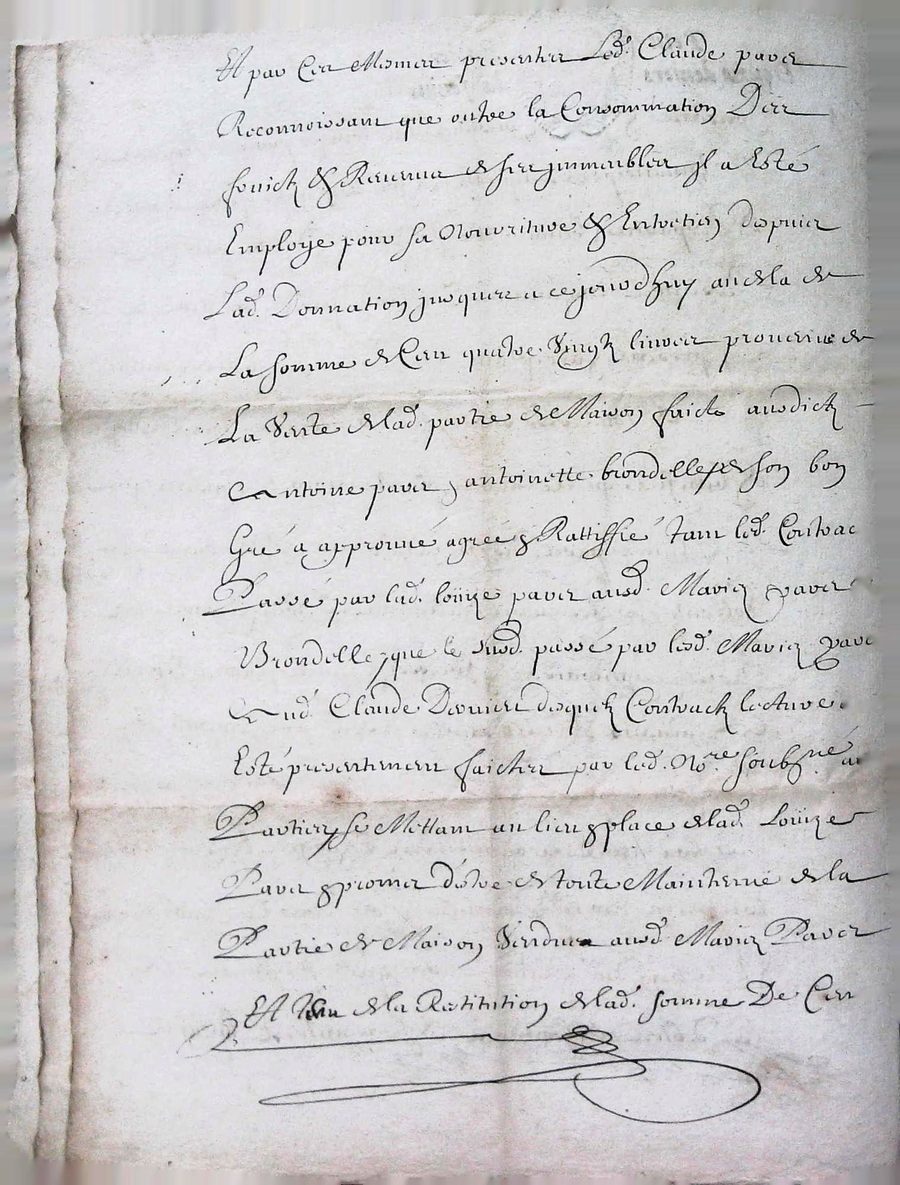 Et par ces mesmes presentes Led. Claude paves
Reconnoissant que outre la Consommation Des
fruictz & Revenus de ses jmmeubles jl a Esté
Employe pour sa Nourriture & Entretien depuis
Lad. Donnation jusques a ce jourdhuy audela de
La somme de Cent quatre Vingtz livres provenue de
La Vente de lad. partie de Maison faicte ausdictz
Antoine paves, antoinette brondelle, de son bon
Gré a approuvé agreé & Rattiffié tant led. Contrac
Passé par lad. loüize paves ausd. Mariez paves
Brondelle, que le susd. passé par lesd. Mariez pave
Aud. Claude Dernier desquelz Contractz lecture
Esté presentement faictes par led. No.re soubs.né au
Parties, se Mettant au lieu & place de lad. Loüize
Paves & promes d'estre de toute Maintenüe de la
Partie de Maison Vendue ausd. Mariez Paves
Et de la Restitution de lad. somme De Cen